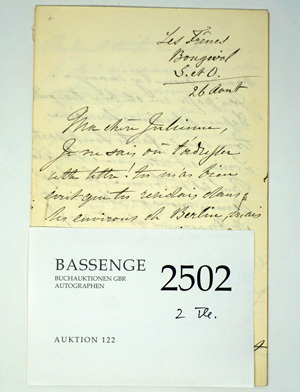 Les Frênes
Bougival
S. et O.
26 août
Ma chère Julienne,
Je ne sais où t'adresser
cette lettre. Tu m'as bien
écrit que tu résidais dans
les environs de Berlin, mais
BASSENGE
BUCHAUKTIONEN GBR
AUTOGRAPHEN
2502
2 Tle.
AUKTION 122